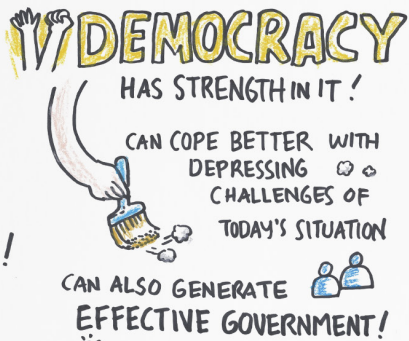 DEMOCRACY
HAS STRENGTH IN IT!
CAN COPE BETTER WITH
DEPRESSING
CHALLENGES OF
TODAY'S SITUATION
!
CAN ALSO GENERATE
EFFECTIVE GOVERNMENT!